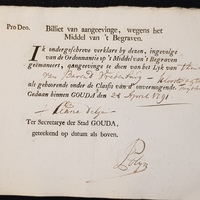 Pro Deo.
Billiet van aangeevinge, wegens het
Middel van 't Begraven.
Ik ondergeschreve verklare by dezen, ingevolge
van de Ordonnantie op 't Middel van 't Begraven
geëmaneert, aangevinge te doen van het Lyk van
van Barend
als gehoorende onder de Classis van d' onvermogende.
Gedaan binnen GOUDA, den 28 April 1791
Ter Secretarye der Stad GOUDA,
geteekend op datum als boven.